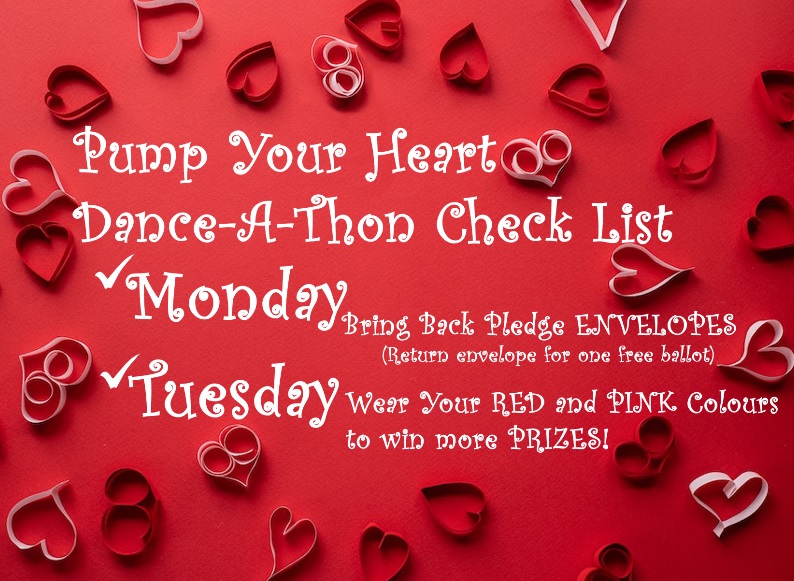 Pump Your Heart
Dance-A-Thon Check List
✓Monday Bring Back Pledge ENVELOPES
(Return envelope for one free ballot)
✓Tuesday Wear Your RED and PINK Colours
to win more PRIZES!